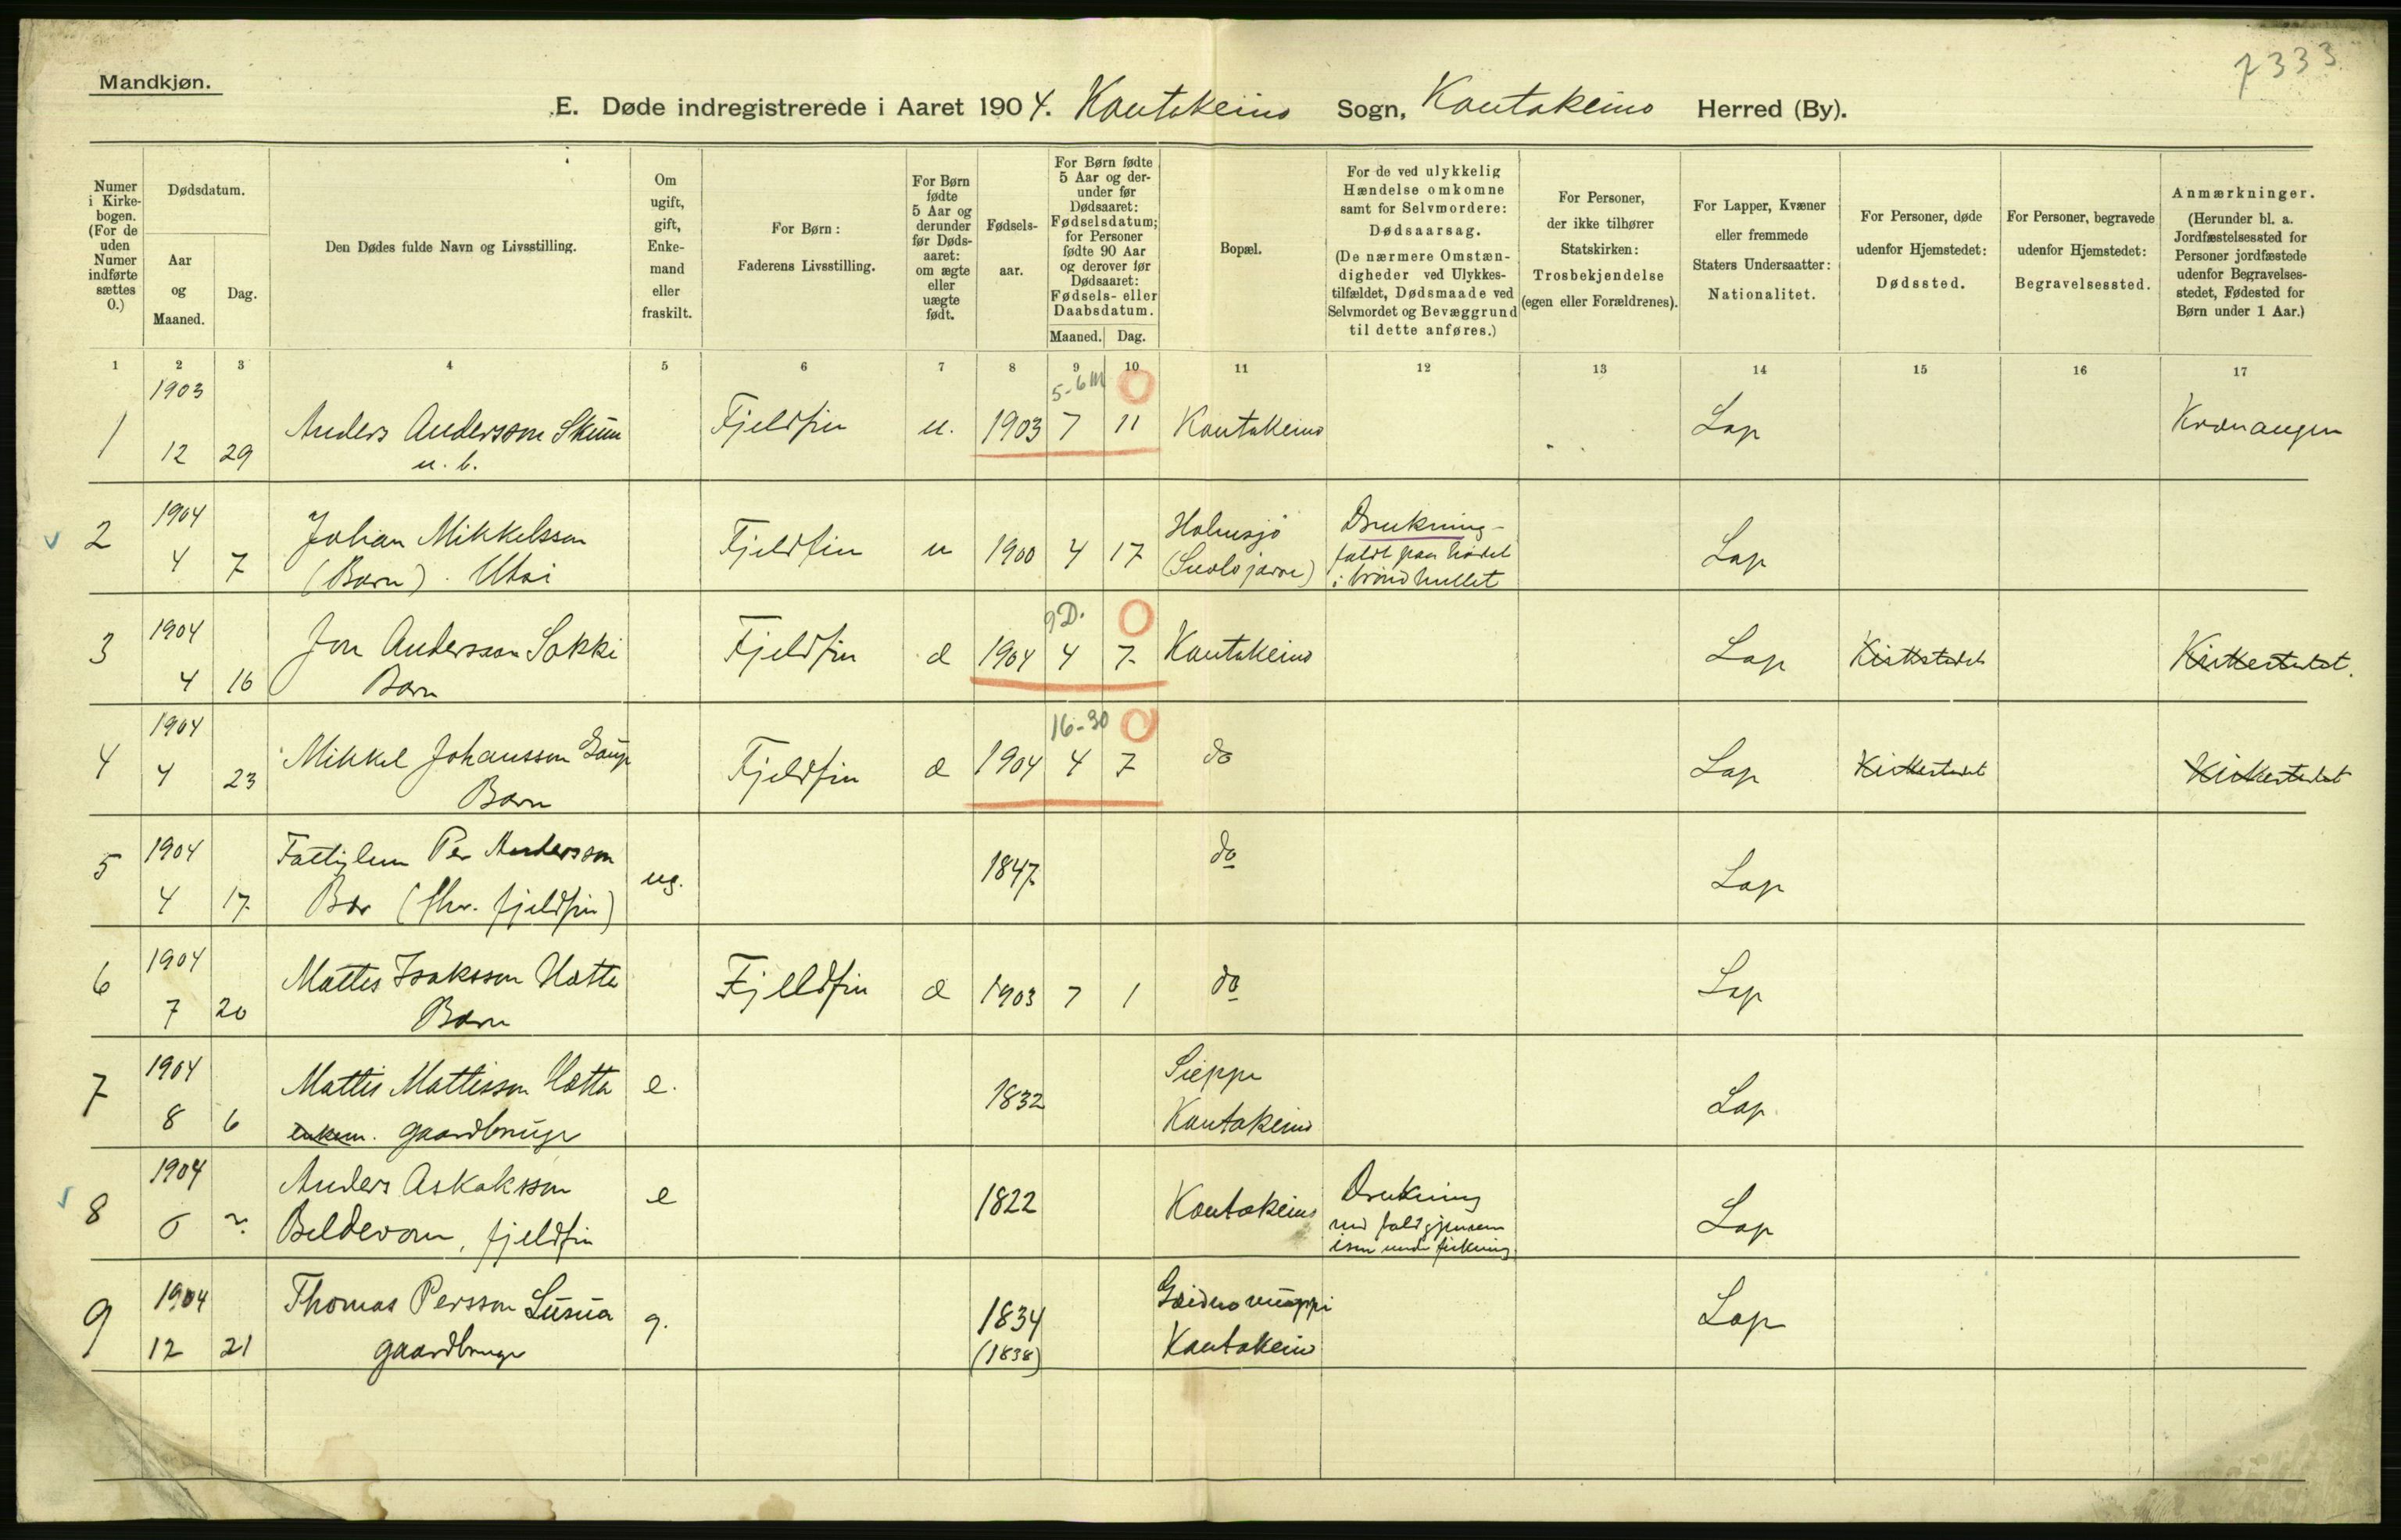 7333
Mandkjøn.
E. Døde indregistrerede i Aaret 1904. Kautokeino Sogn, Kautokeino Herred (By).
Numer i Kirkebogen. (For de uden Numer indførte sættes 0.)
Dødsdatum.
Aar og Maaned.
Dag.
Den Dødes fulde Navn og Livsstilling.
Om ugift, gift, Enkemand eller fraskilt.
For Børn: Faderens Livsstilling.
For Børn fødte 5 Aar og derunder før Dødsaaret: om ægte eller uægte født.
Fødselsaar.
For Børn fødte 5 Aar og derunder før Dødsaaret: Fødselsdatum; for Personer fødte 90 Aar og derover før Dødsaaret: Fødsels- eller Daabsdatum.
Maaned. Dag.
Bopæl.
For de ved ulykkelig Hændelse omkomne samt for Selvmordere: Dødsaarsag. (De nærmere Omstændigheder ved Ulykkestilfældet, Dødsmaade ved Selvmordet og Bevæggrund til dette anføres.)
For Personer, der ikke tilhører Statskirken: Trosbekjendelse (egen eller Forældrenes).
For Lapper, Kvæner eller fremmede Staters Undersaatter: Nationalitet.
For Personer, døde udenfor Hjemstedet: Dødssted.
For Personer, begravede udenfor Hjemstedet: Begravelsessted.
Anmærkninger. (Herunder bl. a. Jordfæstelsessted for Personer jordfæstede udenfor Begravelsesstedet, Fødested for Børn under 1 Aar.)
1 2 3 4 5 6 7 8 9 10 11 12 13 14 15 16 17
1903 5-6 m 0
1 12 29 Anders Andersson Skum Fjeldfin u. 1903 7 11 Kautokeino Lap Kvænangen
u. b.
1904 Holmsjø Drukning -
2 4 7 Johan Mikkelsson Fjeldfin u 1900 4 17 (Suolojavre) faldt paa hodet Lap
(Barn). Utsi i brøndhullet
1904 9 D. 0
3 4 16 Jon Andersson Sokki Fjeldfin æ 1904 4 7 Kautokeino Lap Kirkstedet Kirkestedet.
Barn
1904 16-30 0
4 4 23 Mikkel Johansson Gaup Fjeldfin æ 1904 4 7 do Lap Kirkestedet Kirkestedet
Barn
1904
5 4 17 Fattiglem Per Andersson ug. 1847 do Lap
Bær (fhv. fjeldfin)
1904
6 7 20 Mattis Isaksson Hætta Fjeldfin æ 1903 7 1 do Lap
Barn
1904 Sieppe
7 8 6 Mattis Mattisson Hætta e. 1832 Kautokeino Lap
enkem. gaardbruger
1904
8 6 ? Anders Aslaksson e 1822 Kautokeino Drukning Lap
Beldevom, fjeldfin ved fald gjennem
isen under fiskning
1904 Gæidnovuoppi
9 12 21 Thomas Persson Lusua g. 1834 Kautokeino Lap
gaardbruger (1838)